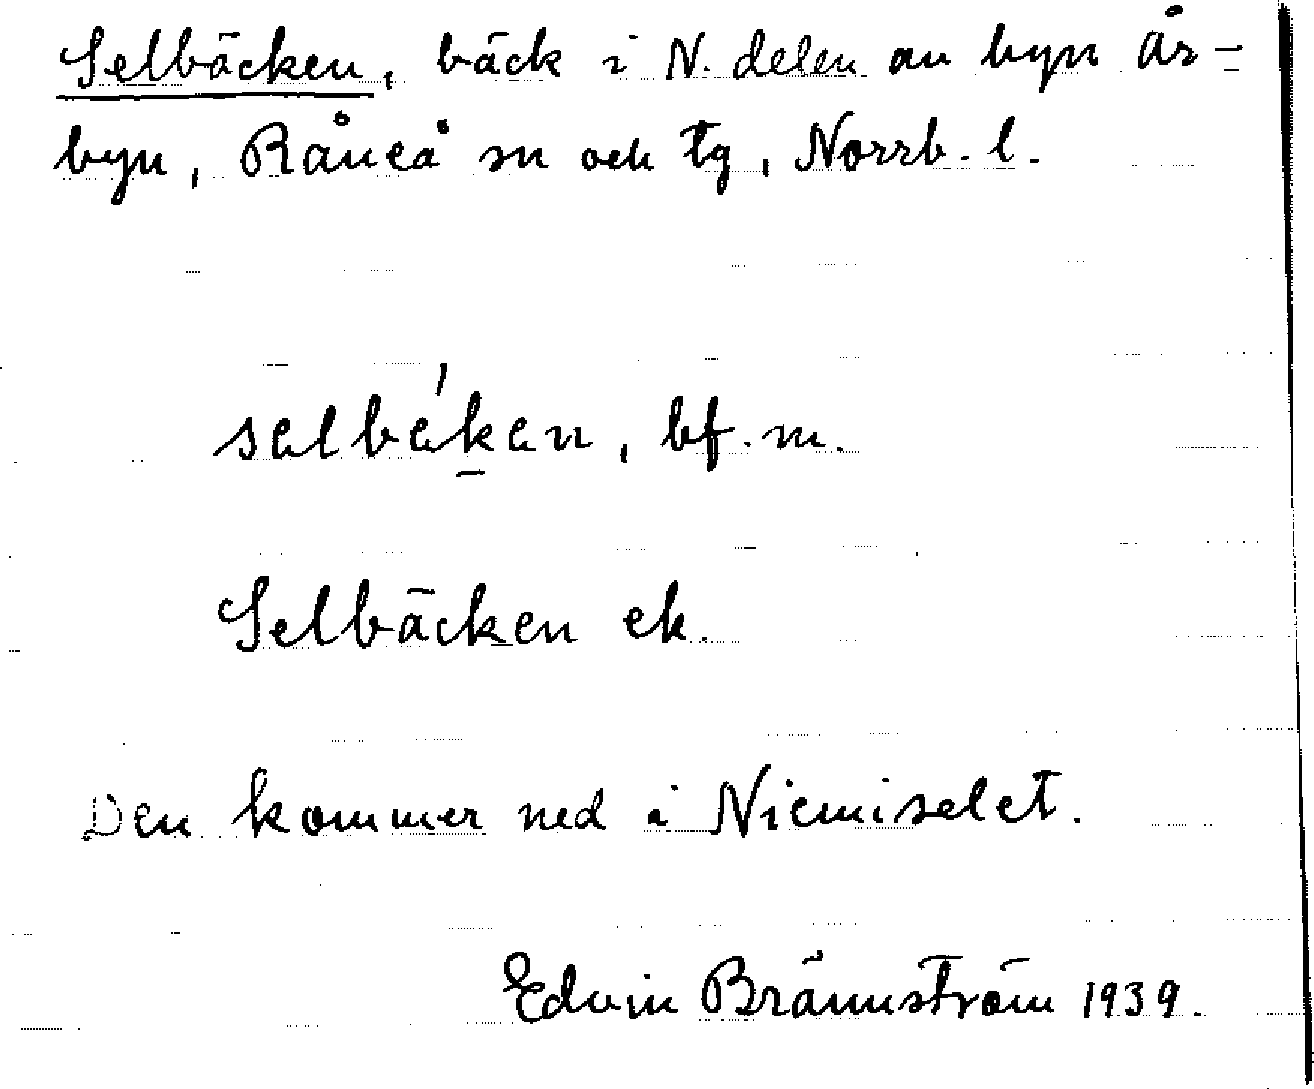 Selbäcken, bäck i N. delen av byn År-
byn, Råneå sn och tg, Norrb. l.
selbéken, bf. m.
Selbäcken ek.
Den kommer ned i Niemiselet.
Edvin Brännström 1939.